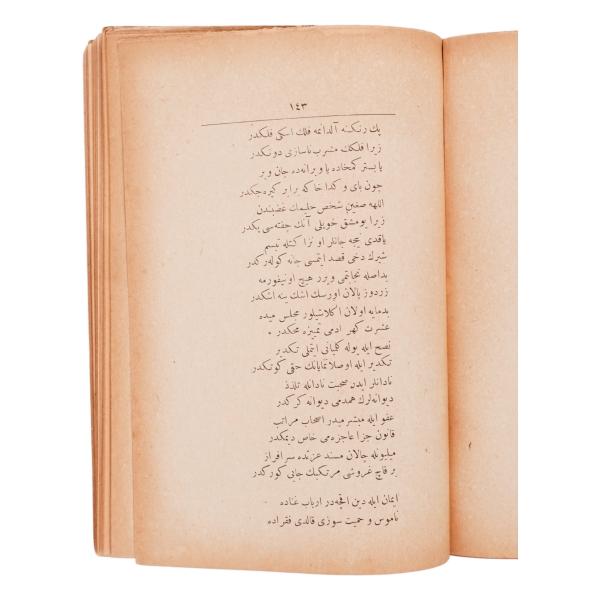 ١٤٣
پك رنكینه آلدانمه فلك اسكی فلكدر
زیرا فلكك مشرب ناسازی دونكدر
یا بستر كمخاده یا ویرانه‌ده جان ویر
چون بای و كدا خاكه برابر كیره‌جكدر
اللهه صغین شخص حلیمك غضبندن
زیرا یومشق خویلی آتك چفته‌سی پكدر
یاقدی نیجه جانلر او نزاكتله تبسم
شیرك دخی قصد ایتمسی جانه كوله‌ركدر
بداصله نجابتمی ویرر هیچ اونیفورمه
زردوز پالان اورسك اشك ینه اشكدر
بدمایه اولان اكلاشیلور مجلس میده
عشرت كهر آدمی تمییزه محكدر
نصح ایله یوله كلمیانی ایتملی تكدیر
تكدیر ایله اوصلانمایانك حقی كوتكدر
نادانلر ایدر صحبت نادانله تلذذ
دیوانه‌لرك همدمی دیوانه كركدر
عفو ایله مبشر میدر اصحاب مراتب
قانون جزا عاجزه‌می خاص دیمكدر
میلیونله چالان مسند عزتده سرافراز
بر قاچ غروشی مرتكبك جایی كوركدر
ایمان ایله دین اقچه‌در ارباب غناده
ناموس و حمیت سوزی قالدی فقراده